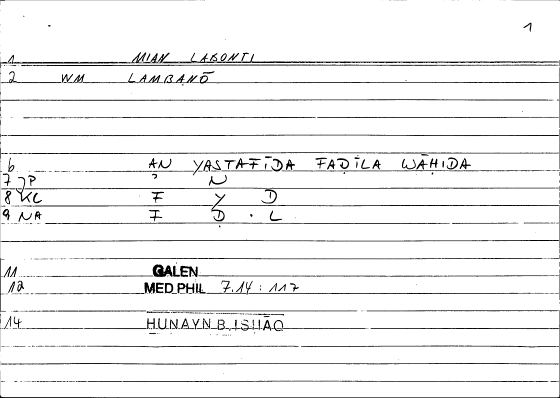 1
1 MIAN LABONTI
2 WM LAMBANŌ
6 AN YASTAFĪDA FAḌĪLA WĀḤIDA
7 JP ʾ N
8 KL F Y D
9 NA F Ḍ . L
11 GALEN
12 MED.PHIL 7.14 : 117
14 HUNAYN B. ISHĀQ